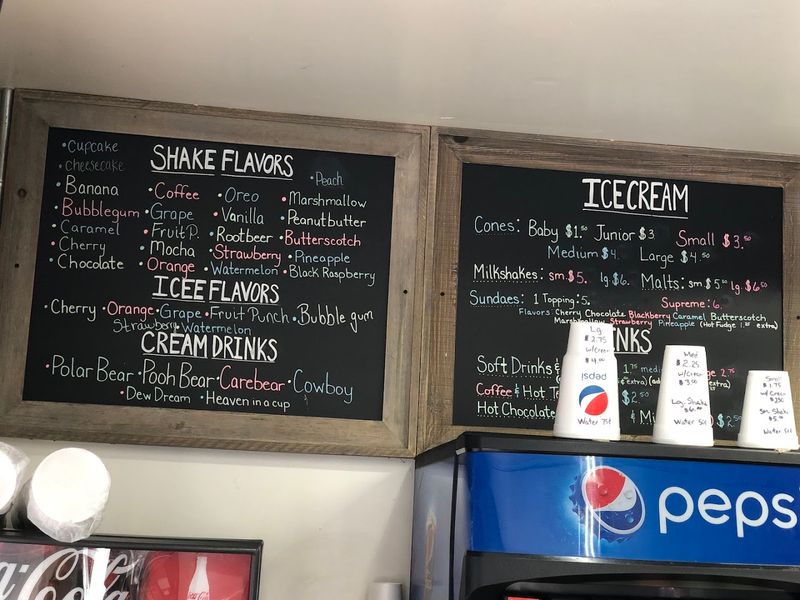 SHAKE FLAVORS
•Cupcake
•Cheesecake
•Banana
•Bubblegum
•Caramel
•Cherry
•Chocolate
•Coffee
•Grape
•Fruit P.
•Mocha
•Orange
•Oreo
•Vanilla
•Rootbeer
•Strawberry
•Watermelon
•Peach
•Marshmallow
•Peanutbutter
•Butterscotch
•Pineapple
•Black Raspberry
ICEE FLAVORS
•Cherry •Orange •Grape •Fruit Punch •Bubble gum
Strawberry Watermelon
CREAM DRINKS
•Polar Bear •Pooh Bear •Carebear •Cowboy
•Dew Dream •Heaven in a cup
ICECREAM
Cones: Baby $1.50 Junior $3. Small $3.50
Medium $4. Large $4.50
Milkshakes: sm $5. lg $6. Malts: sm $5.50 lg. $6.50
Sundaes: 1 Topping: 5. Supreme: 6.
Flavors Cherry Chocolate Blackberry Caramel Butterscotch
Marshmallow Strawberry Pineapple (Hot Fudge extra)
NKS
Soft Drinks
1.75 med
2.75
Coffee & Hot
$2.50
Hot Chocolate
$2.50
Lg
$2.75
w/cream
$4.00
pepsi
Water 75¢
Med
$2.25
w/cream
$3.00
Lg. Shake
Water 50¢
Small
$1.75
w/Cream
$2.50
Sm. Shake
$5.00
Water
pepsi
Coca-Cola